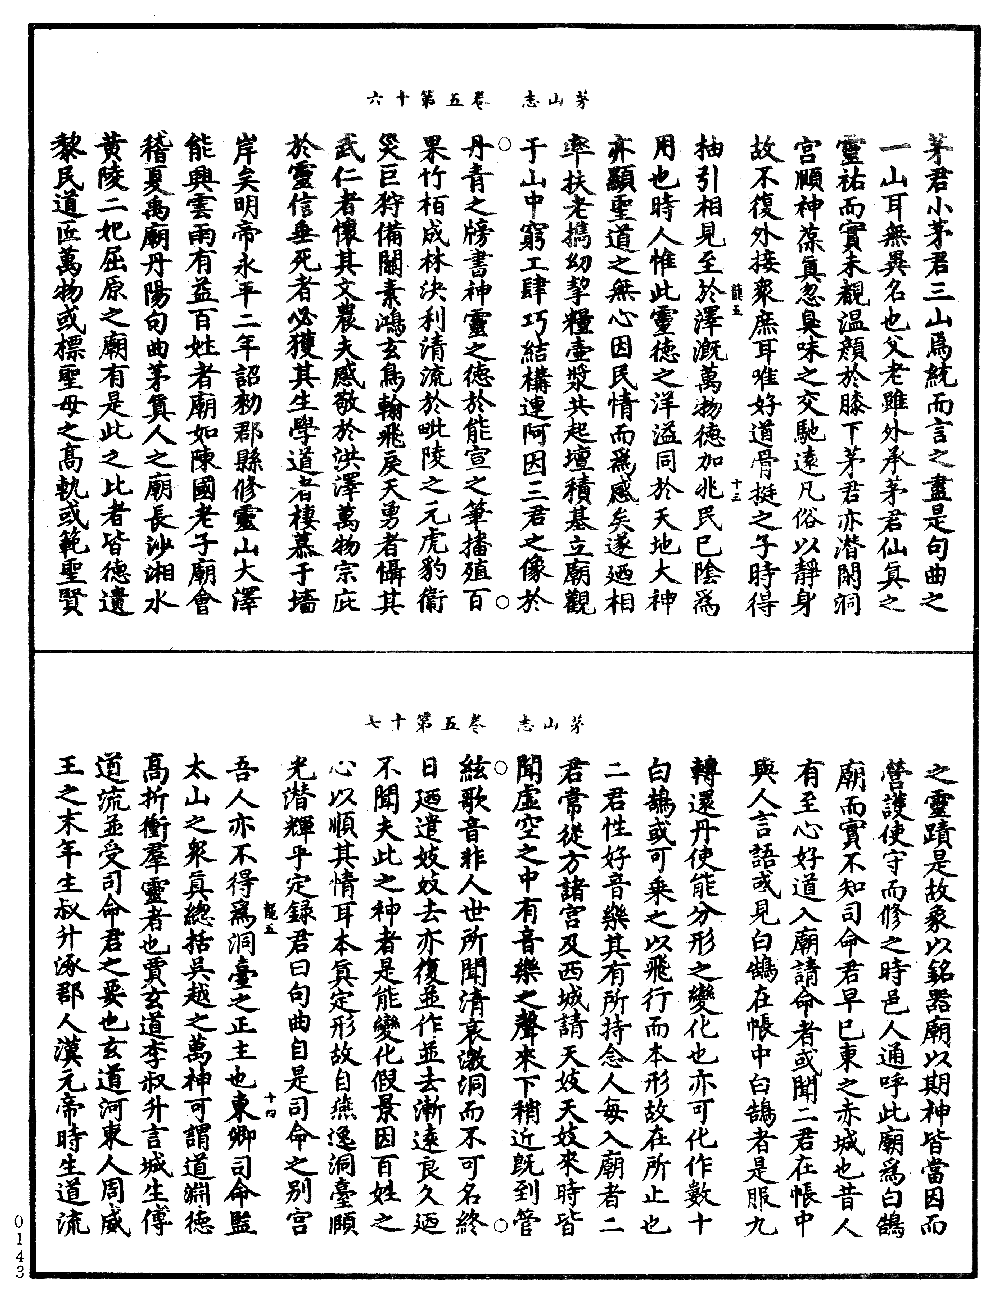 茅山志　卷五第十六
茅君小茅君三山爲統而言之盡是句曲之
一山耳無異名也父老雖外承茅君仙真之
靈祐而實未覩溫顏於膝下茅君亦潛閑洞
宮順神葆真忽臭味之交馳遠凡俗以靜身
故不復外接衆庶耳唯好道骨挺之子時得
龍五　十三
抽引相見至於澤溉萬物德加兆民巳陰爲
用也時人惟此靈德之洋溢同於天地大神
亦顯聖道之無心因民情而爲感矣遂廼相
率扶老攜幼挈糧壷漿共起壇積基立廟觀
于山中窮工肆巧結構連阿因三君之像於
丹青之牓書神靈之德於能宣之筆播殖百
果竹栢成林決利清流於毗陵之元虎豹衞
災巨狩備關素鴻玄鳥翰飛戾天勇者懾其
武仁者懷其文農夫感敬於洪澤萬物宗庇
於靈信垂死者必獲其生學道者棲慕于墻
岸矣明帝永平二年詔勑郡縣修靈山大澤
能興雲雨有益百姓者廟如陳國老子廟會
稽夏禹廟丹陽句曲茅真人之廟長沙湘水
黃陵二妃屈原之廟有是此之比者皆德遺
黎民道匠萬物或標聖母之高軌或範聖賢
茅山志　卷五第十七
之靈蹟是故象以銘器廟以期神皆當因而
營護使守而修之時邑人通呼此廟爲白鵠
廟而實不知司命君早巳東之赤城也昔人
有至心好道入廟請命者或聞二君在帳中
與人言語或見白鵠在帳中白鵠者是服九
轉還丹使能分形之變化也亦可化作數十
白鵠或可乘之以飛行而本形故在所止也
二君性好音樂其有所持念人每入廟者二
君常從方諸宮及西城請天妓天妓來時皆
聞虛空之中有音樂之聲來下稍近旣到管
絃歌音非人世所聞清哀激洞而不可名終
日廼遣妓妓去亦復並作並去漸遠良久廼
不聞夫此之神者是能變化假景因百姓之
心以順其情耳本真定形故自無逸洞臺願
光潜輝乎定録君曰句曲自是司命之别宮
龍五　十四
吾人亦不得爲洞臺之正主也東卿司命監
太山之衆真總括吳越之萬神可謂道淵德
高折衝羣靈者也賈玄道李叔升言城生傅
道流並受司命君之要也玄道河東人周威
王之末年生叔升涿郡人漢元帝時生道流
0143